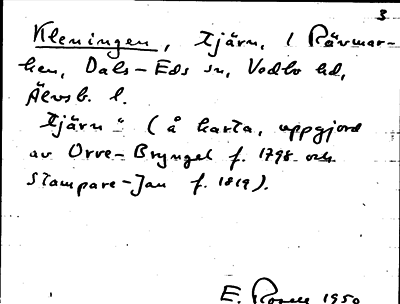 3
Kleningen, Tjärn, i Rävmar-
ken, Dals-Eds sn, Vedbo hd,
Älvsb. l.
Tjärn - (å karta, uppgjord
av Orre-Bryngel f. 1798 och
Stampare-Jan f. 1819).
E. Rosell 1950